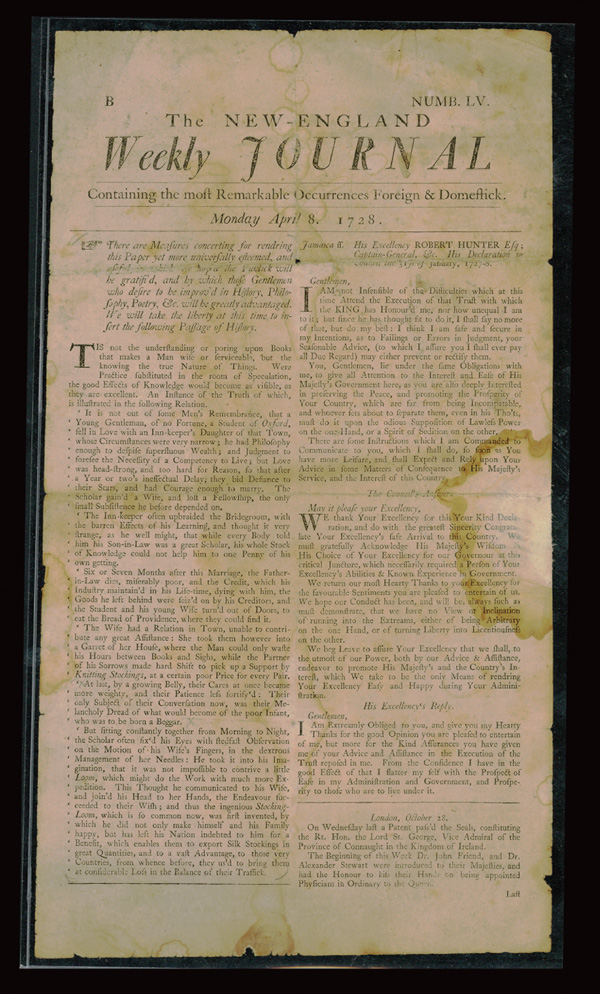 B
NUMB. LV.
The NEW-ENGLAND
Weekly JOURNAL
Containing the moſt Remarkable Occurrences Foreign & Domeſtick.
Monday April 8. 1728.
There are Meaſures concerting for rendring
this Paper yet more univerſally eſteemed, and
uſeful, in which, 'tis hop'd the Publick will
be gratify'd, and by which thoſe Gentlemen
who deſire to be improv'd in Hiſtory, Philo-
ſophy, Poetry, &c. will be greatly advantaged.
We will take the liberty at this time to in-
ſert the following Paſſage of Hiſtory.
TIS not the underſtanding or poring upon Books
that makes a Man wiſe or ſerviceable, but the
knowing the true Nature of Things. Were
Practice ſubſtituted in the room of Speculation,
the good Effects of Knowledge would become as viſible, as
they are excellent. An Inſtance of the Truth of which,
is illuſtrated in the following Relation.
' It is not out of ſome Men's Remembrance, that a
' Young Gentleman, of no Fortune, a Student of Oxford,
' fell in Love with an Inn-keeper's Daughter of that Town,
' whoſe Circumſtances were very narrow; he had Philoſophy
' enough to deſpiſe ſuperfluous Wealth; and Judgment to
' foreſee the Neceſſity of a Competency to Live; but Love
' was head-ſtrong, and too hard for Reaſon, ſo that after
' a Year or two's ineffectual Delay; they bid Defiance to
' their Stars, and had Courage enough to marry. The
' Scholar gain'd a Wife, and loſt a Fellowſhip, the only
' ſmall Subſiſtence he before depended on.
' The Inn-keeper often upbraided the Bridegroom, with
' the barren Effects of his Learning, and thought it very
' ſtrange, as he well might, that while every Body told
' him his Son-in-Law was a great Scholar, his whole Stock
' of Knowledge could not help him to one Penny of his
' own getting.
' Six or Seven Months after this Marriage, the Father-
' in-Law dies, miſerably poor, and the Credit, which his
' Induſtry maintain'd in his Life-time, dying with him, the
' Goods he left behind were ſeiz'd on by his Creditors, and
' the Student and his young Wife turn'd out of Doors, to
' eat the Bread of Providence, where they could find it.
' The Wife had a Relation in Town, unable to contri-
' bute any great Aſſiſtance: She took them however into
' a Garret of her Houſe, where the Man could only waſte
' his Hours between Books and Sighs, while the Partner
' of his Sorrows made hard Shift to pick up a Support by
' Knitting Stockings, at a certain poor Price for every Pair.
' At laſt, by a growing Belly, their Cares at once became
' more weighty, and their Patience leſs fortify'd: Their
' only Subject of their Converſation now, was their Me-
' lancholy Dread of what would become of the poor Infant,
' who was to be born a Beggar.
' But ſitting conſtantly together from Morning to Night,
' the Scholar often fix'd his Eyes with ſtedfaſt Obſervation
' on the Motion of his Wife's Fingers, in the dextrous
' Management of her Needles: He took it into his Ima-
' gination, that it was not impoſſible to contrive a little
' Loom, which might do the Work with much more Ex-
' pedition. This Thought he communicated to his Wife,
' and join'd his Head to her Hands, the Endeavour ſuc-
' ceeded to their Wiſh; and thus the ingenious Stocking-
' Loom, which is ſo common now, was firſt invented, by
' which he did not only make himſelf and his Family
' happy, but has left his Nation indebted to him for a
' Benefit, which enables them to export Silk Stockings in
' great Quantities, and to a vaſt Advantage, to thoſe very
' Countries, from whence before, they us'd to bring them
' at conſiderable Loſs in the Balance of their Traffick.
Jamaica ſſ. His Excellency ROBERT HUNTER Eſq;
Captain-General, &c. His Declaration in
Council the 31ſt of January, 1727-8.
Gentlemen,
I AM not Inſenſible of the Difficulties which at this
time Attend the Execution of that Truſt with which
the KING has Honour'd me, nor how unequal I am
to it; but ſince he has thought fit to do it, I ſhall ſay no more
of that, but do my beſt: I think I am ſafe and ſecure in
my Intentions, as to Failings or Errors in Judgment, your
Seaſonable Advice, (to which I aſſure you I ſhall ever pay
all Due Regard) may either prevent or rectify them.
You, Gentlemen, lie under the ſame Obligations with
me, to give all Attention to the Intereſt and Eaſe of His
Majeſty's Government here, as you are alſo deeply Intereſted
in preſerving the Peace, and promoting the Proſperity of
Your Country, which are far from being Incompatible,
and whoever ſets about to ſeparate them, even in his Tho'ts,
muſt do it upon the odious Suppoſition of Lawleſs Power
on the one Hand, or a Spirit of Sedition on the other.
There are ſome Inſtructions which I am Commanded to
Communicate to you, which I ſhall do, ſo ſoon as You
have more Leiſure, and ſhall Expect and Rely upon Your
Advice in ſome Matters of Conſequence to His Majeſty's
Service, and the Intereſt of this Country.
The Council's Anſwer.
May it pleaſe your Excellency,
WE thank Your Excellency for this Your Kind Decla-
ration, and do with the greateſt Sincerity Congratu-
late Your Excellency's ſafe Arrival to this Country. We
muſt gratefully Acknowledge His Majeſty's Wiſdom in
His Choice of Your Excellency for our Governour at this
critical Juncture, which neceſſarily required a Perſon of Your
Excellency's Abilities & Known Experience in Government.
We return our moſt Hearty Thanks to your Excellency for
the favourable Sentiments you are pleaſed to entertain of us.
We hope our Conduct has been, and will be, always ſuch as
muſt demonſtrate, that we have no View or Inclination
of running into the Extreams, either of being Arbitrary
on the one Hand, or of turning Liberty into Licentiouſneſs
on the other.
We beg Leave to aſſure Your Excellency that we ſhall, to
the utmoſt of our Power, both by our Advice & Aſſiſtance,
endeavor to promote His Majeſty's and the Country's In-
tereſt, which We take to be the only Means of rendring
Your Excellency Eaſy and Happy during Your Admini-
ſtration.
His Excellency's Reply.
Gentlemen,
I Am Extreamly Obliged to you, and give you my Hearty
Thanks for the good Opinion you are pleaſed to entertain
of me, but more for the Kind Aſſurances you have given
me of your Advice and Aſſiſtance in the Execution of the
Truſt repoſed in me. From the Confidence I have in the
good Effect of that I flatter my ſelf with the Proſpect of
Eaſe in my Adminiſtration and Government, and Proſpe-
rity to thoſe who are to live under it.
London, October 28.
On Wedneſday laſt a Patent paſs'd the Seals, conſtituting
the Rt. Hon. the Lord St. George, Vice Admiral of the
Province of Connaught in the Kingdom of Ireland.
The Beginning of this Week Dr. John Friend, and Dr.
Alexander Stewart were introduced to their Majeſties, and
had the Honour to kiſs their Hands on being appointed
Phyſicians in Ordinary to the Queen.
Laſt